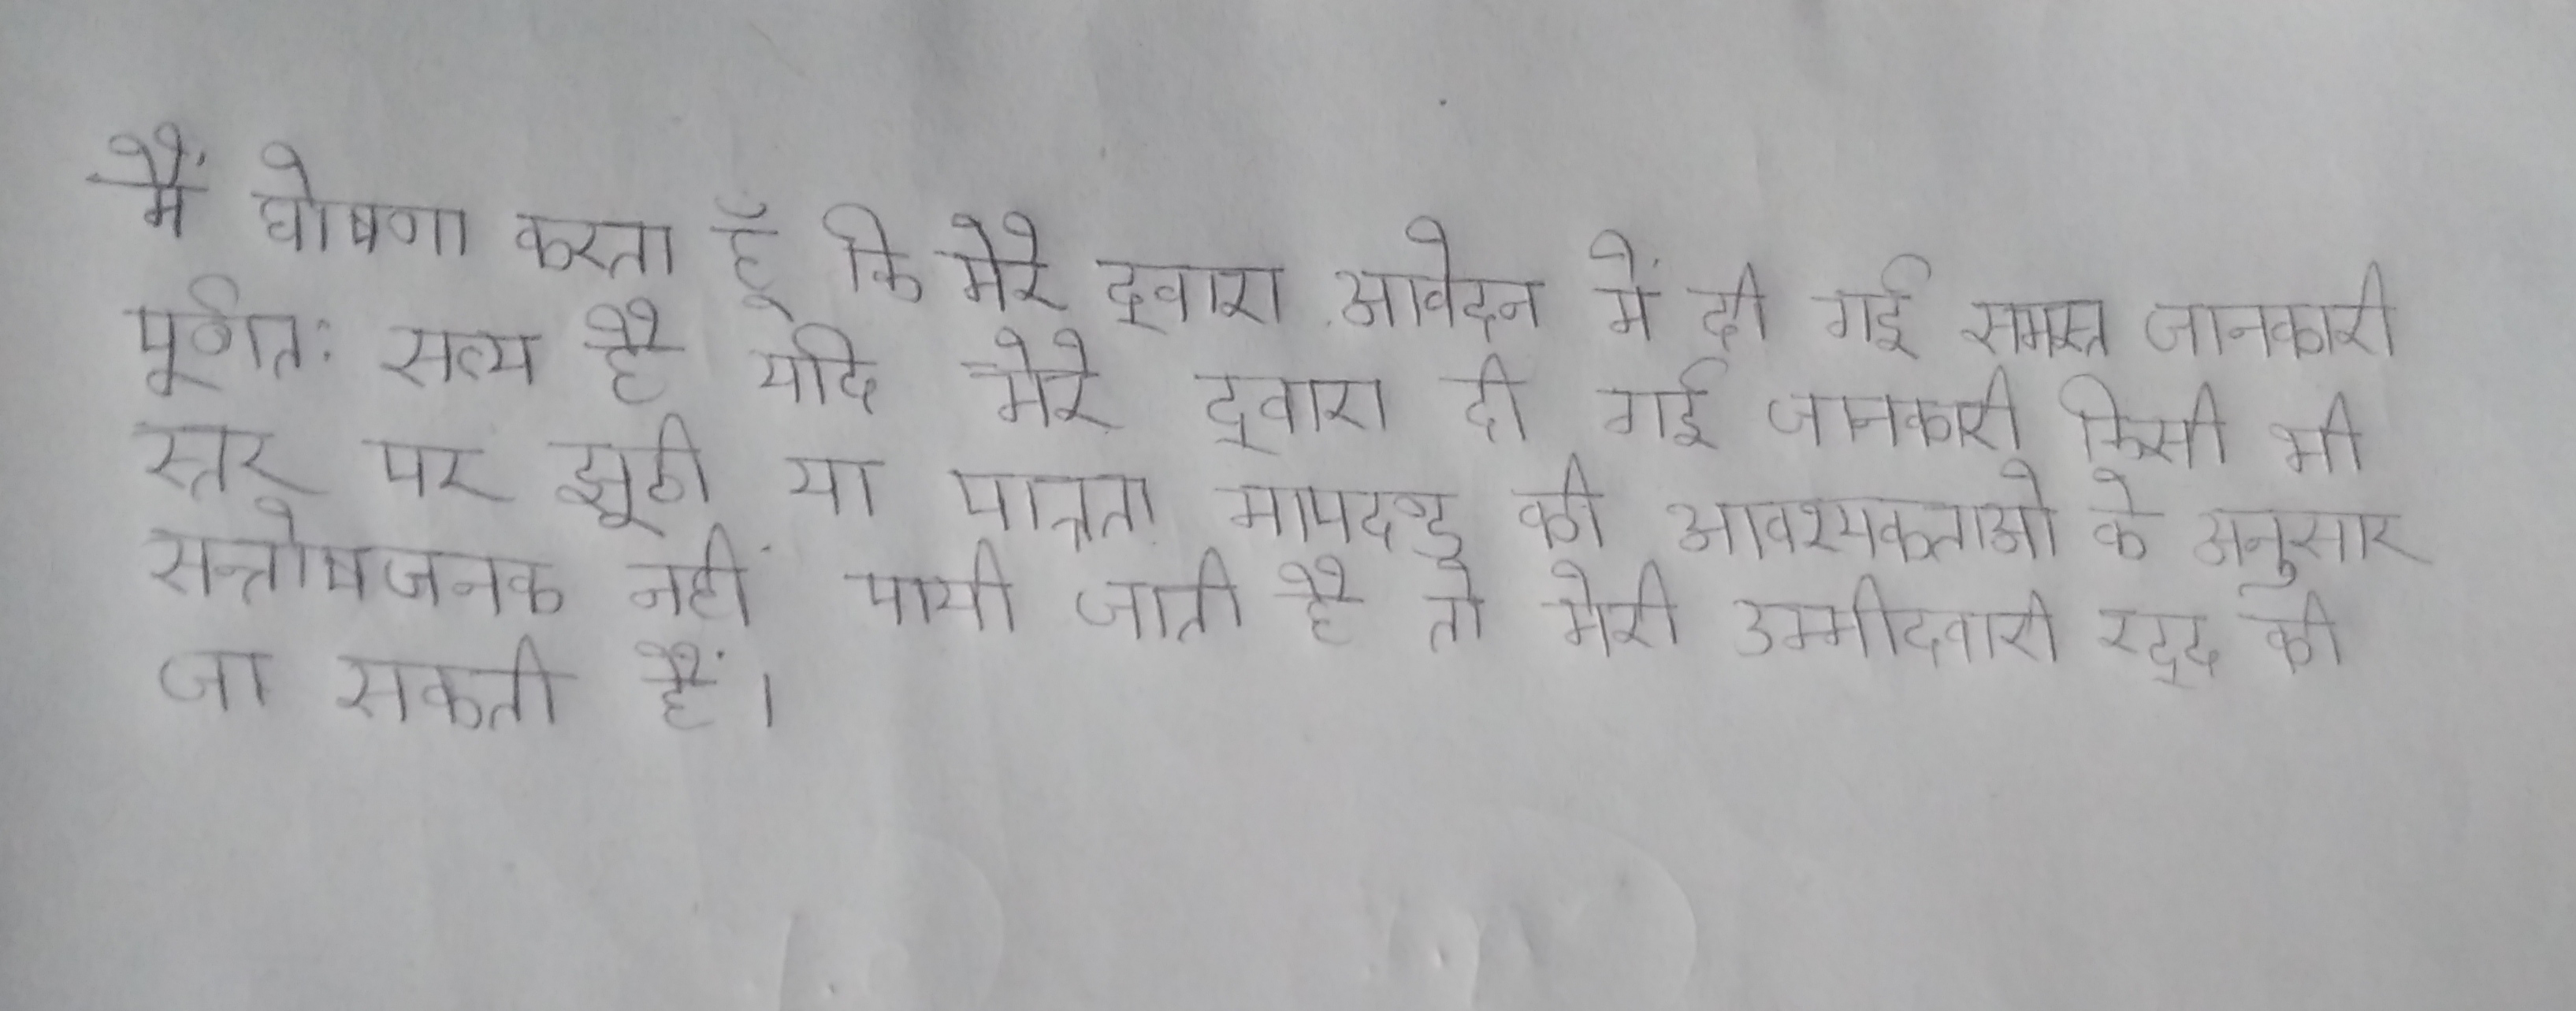 मैं घोषणा करता हूँ कि मेरे द्वारा आवेदन में दी गई समस्त जानकारी
पूर्णतः सत्य है यदि मेरे द्वारा दी गई जानकारी किसी भी
स्तर पर झूठी या पात्रता मापदण्ड की आवश्यकताओ के अनुसार
सन्तोषजनक नहीं पायी जाती है तो मेरी उम्मीदवारी रद्द की
जा सकती हैं।